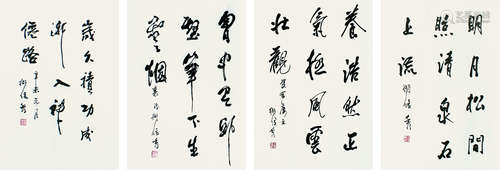 明月松間
照清泉石
上流
柳倩書
養浩然正
氣極風雲
壯觀
柳倩書
胷中具邱
壑筆下生
雲烟
柳倩書
歲久積功成
漸入神
僊路
辛未元月
柳倩書